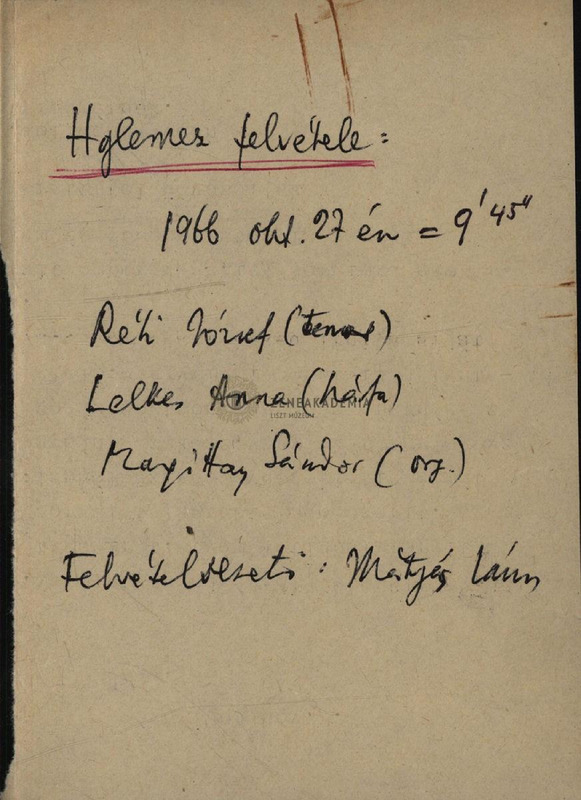 Hglemez felvétele:
1966 okt. 27 én = 9' 45"
Réti József (tenor)
Lelkes Anna (hárfa)
ZENEAKADÉMIA
LISZT MÚZEUM
Margittay Sándor (org.)
Felvételvezető: Mátyás János